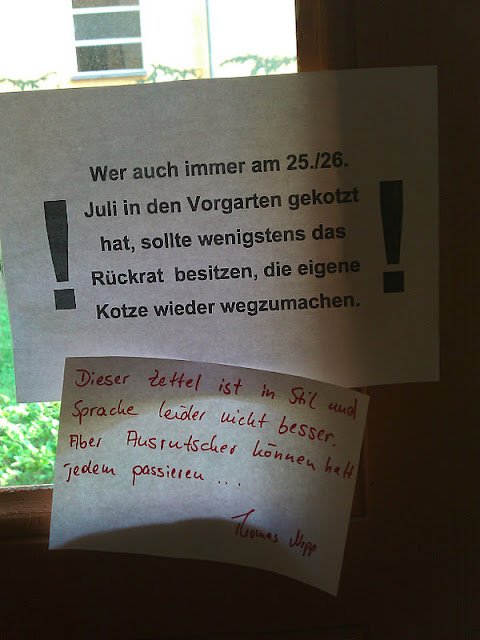 Wer auch immer am 25./26.
Juli in den Vorgarten gekotzt
hat, sollte wenigstens das
Rückrat besitzen, die eigene
Kotze wieder wegzumachen.
! !
Dieser Zettel ist in Stil und
Sprache leider nicht besser.
Aber Ausrutscher können halt
jedem passieren ...
Thomas